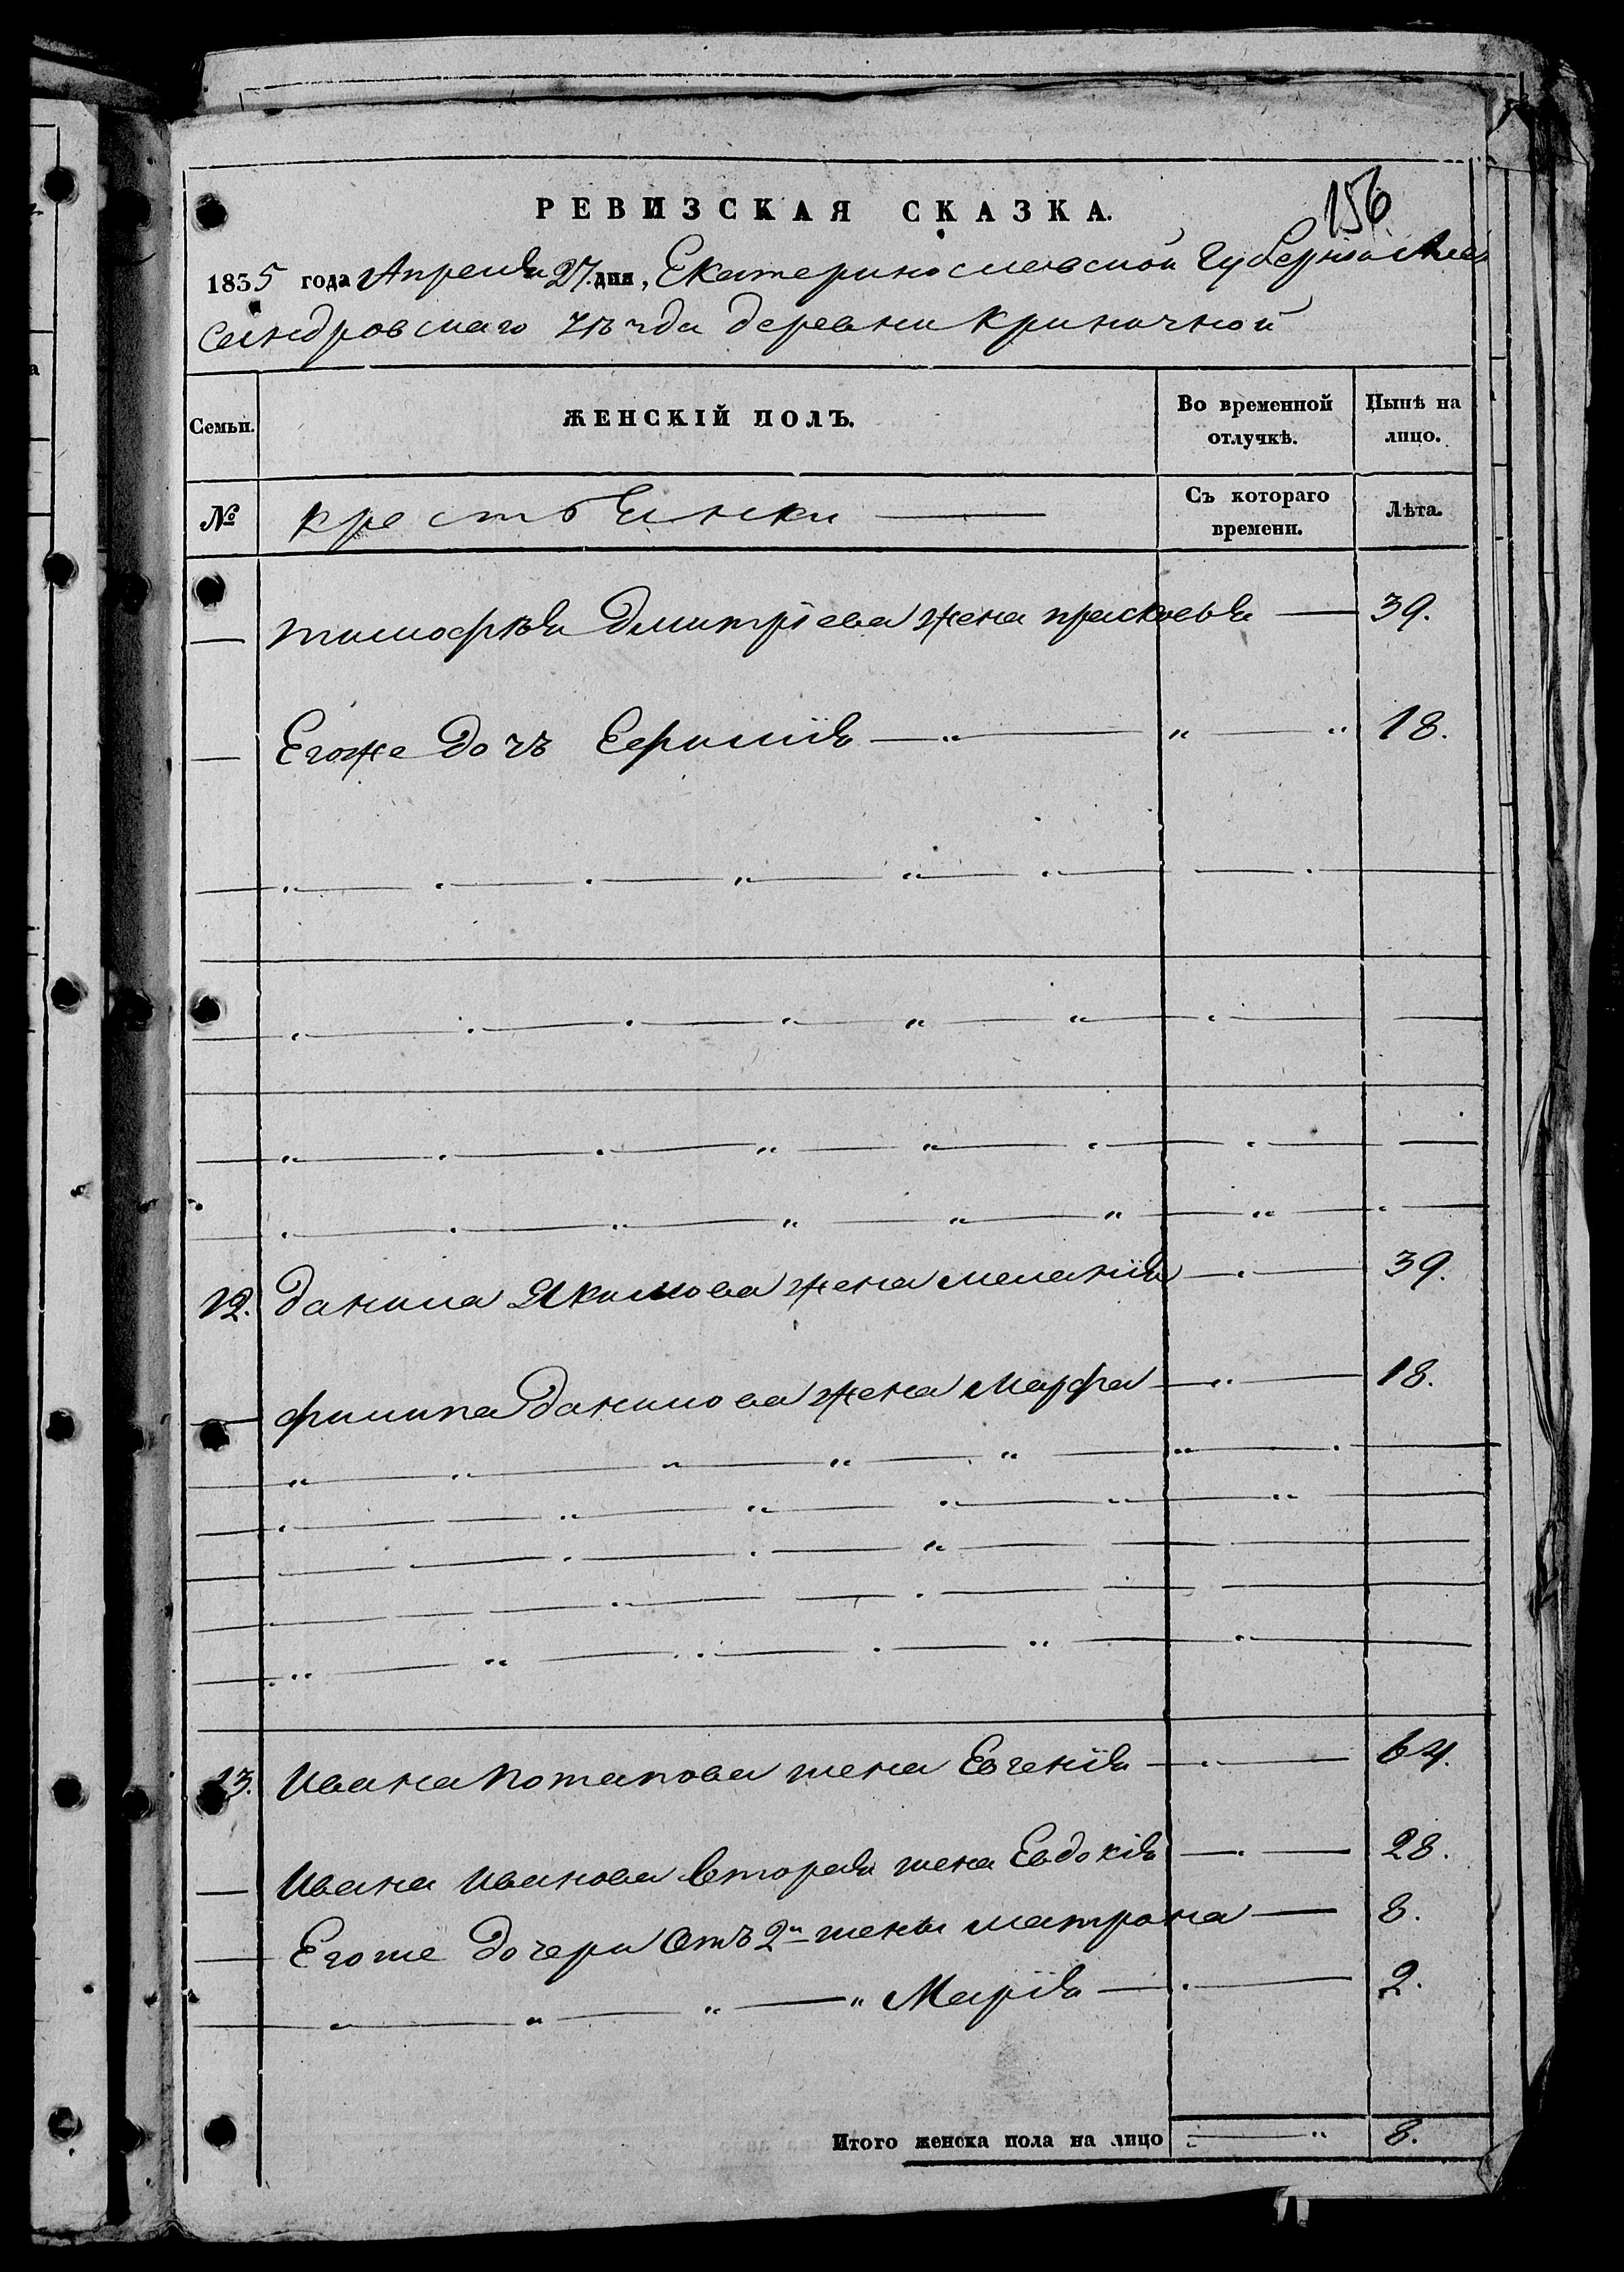 156
РЕВИЗСКАЯ СКАЗКА.
1835 года Апреля 27. дня, Екатеринославской Губерніи Алек
сандровскаго уѣзда деревни Криничной
Семьи. ЖЕНСКІЙ ПОЛЪ. Во временной отлучкѣ. Нынѣ на лицо.
№ крестьянки Съ котораго времени. Лѣта.
— тимофѣя Дмитріева жена прасковья — 39.
— Егоже дочь Ефимія — „ — „ — „ 18.
12. данила Якимова жена меланія — 39.
— филипа данилова жена Марфа — „ — 18.
13. Ивана Потапова жена Евгенія — 64.
— Ивана Иванова вторая жена Евдокія — 28.
— Егоже дочери Отъ 2й жены матрона — 8.
— „ — „ — „ — „ Марія — 2.
Итого женска пола на лицо — „ 8.